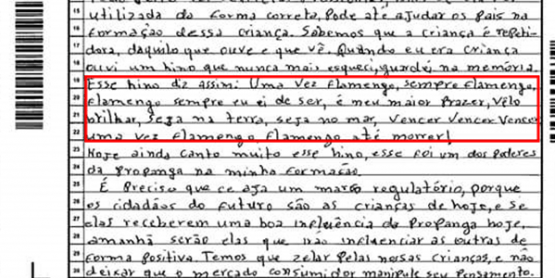 15 utilizada da forma correta, pode até ajudar os pais na
16 formação dessa criança. Sabemos que a criança é repeti-
17 dora, daquilo que ouve e que vê. Quando eu era criança
18 ouvi um hino que nunca mais esqueci, guardei na memória.
19 Esse hino diz assim: Uma vez flamengo, sempre flamengo,
20 flamengo sempre eu ei de ser, é meu maior prazer, velo
21 brilhar, seja na terra, seja no mar, vencer vencer vencer
22 uma vez flamengo flamengo até morrer!
23 Hoje ainda canto muito esse hino, esse foi um dos poderes
24 da propanga na minha formação.
25 É preciso que ce aja um marco regulatório, porque
26 os cidadãos do futuro são as crianças de hoje, e se
27 elas receberem uma boa influência da propanga hoje,
28 amanhã serão elas que irão influenciar as outras de
29 forma positiva. Temos que zelar pelas nossas crianças, e não
30 deixar que o mercado consumidor manipule seu pensamento.